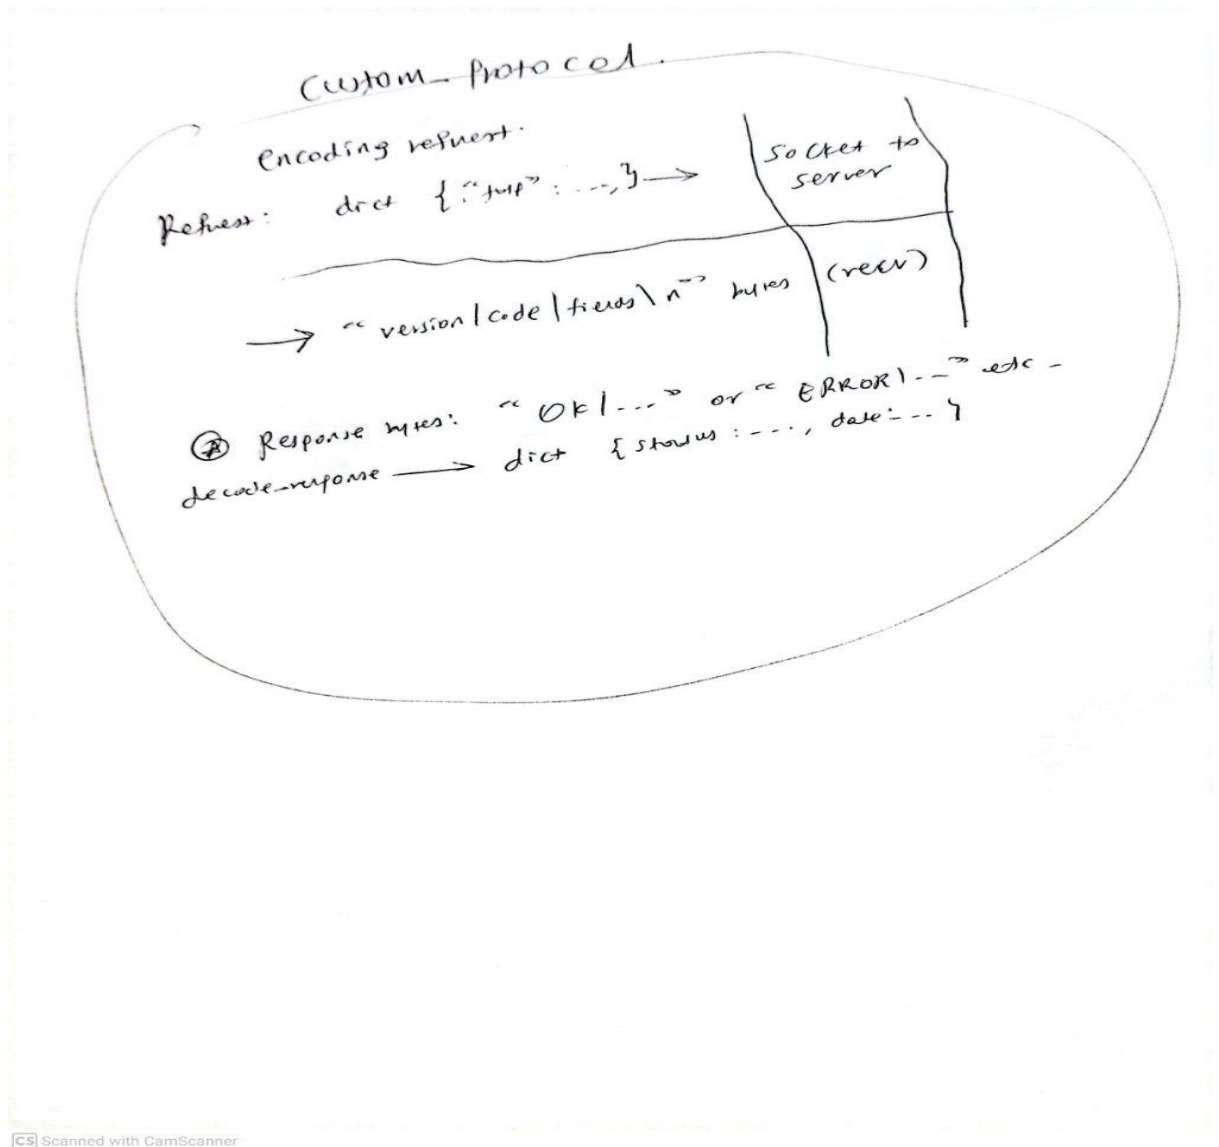 Custom_Protocol.
encoding request.
Request: dict {"type" : ...,} → socket to server
→ "version|code|fields\n" bytes (recv)
Response bytes: "OK|..." or "ERROR|..." etc -
decode_response → dict {status : ----, date : -- }
CS Scanned with CamScanner